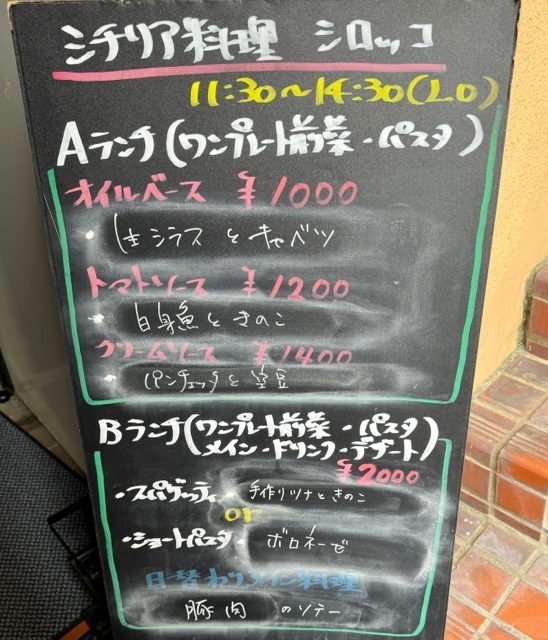 シチリア料理 シロッコ
11:30〜14:30(LO)
Aランチ(ワンプレート前菜・パスタ)
オイルベース ¥1000
・生シラスとキャベツ
トマトソース ¥1200
・白身魚ときのこ
クリームソース ¥1400
・パンチェッタと空豆
Bランチ(ワンプレート前菜・パスタ
メイン・ドリンク・デザート)
¥2000
・スパゲッティ・手作りツナときのこ
or
・ショートパスタ・ボロネーゼ
日替わりメイン料理
豚肉のソテー